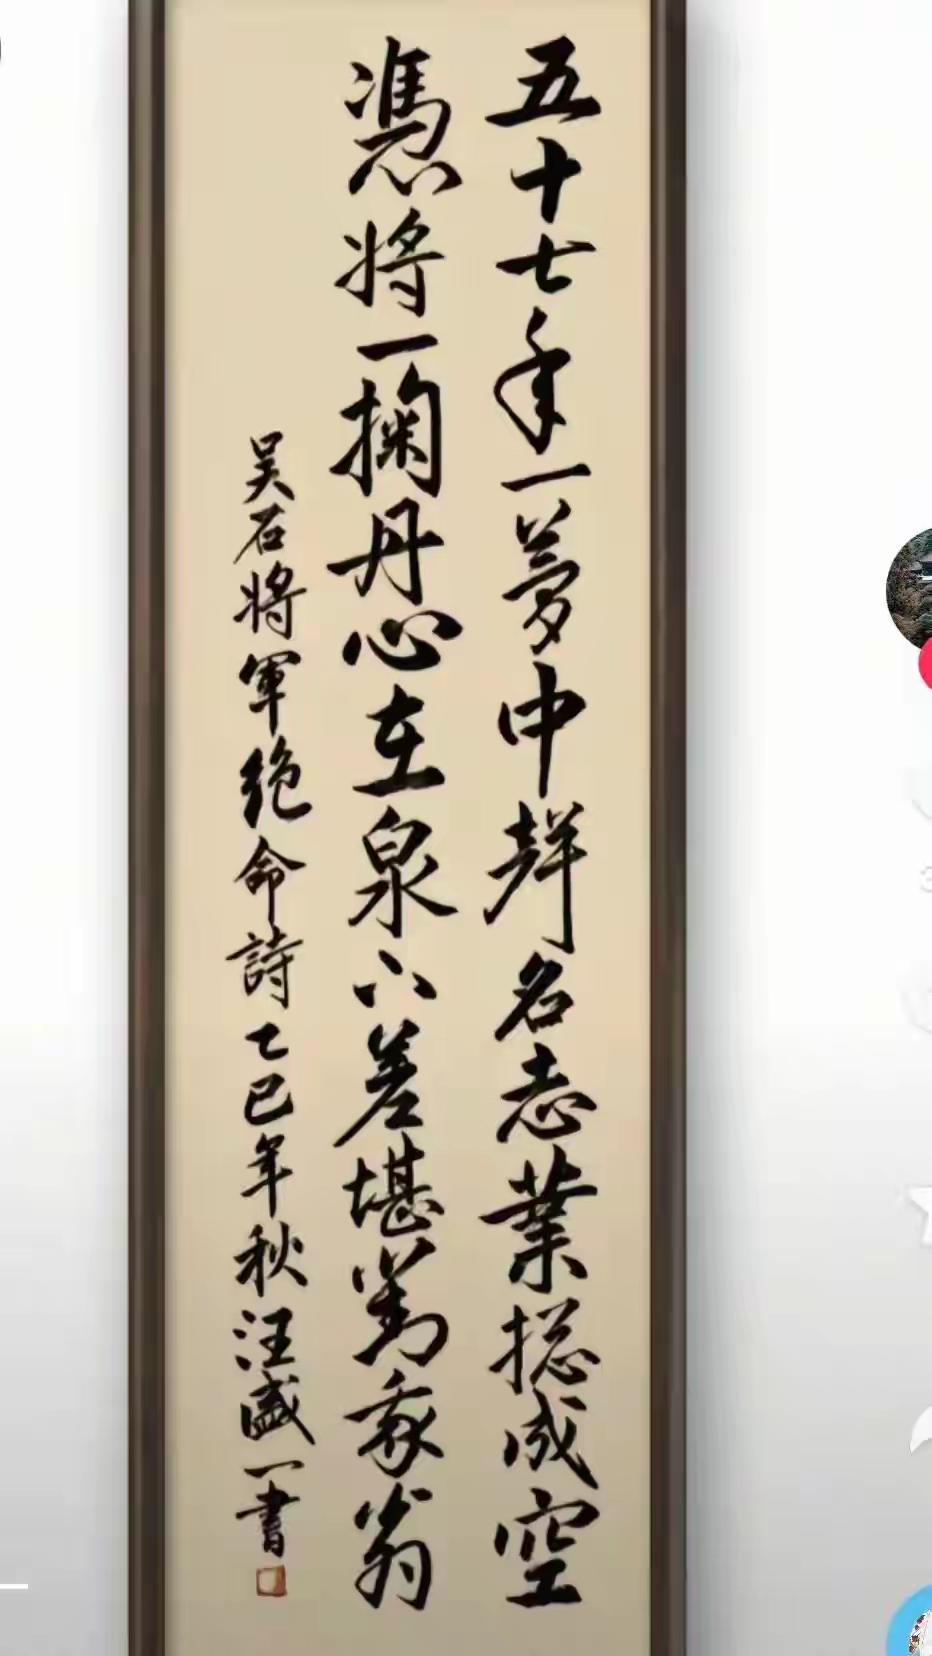 五十七年一夢中聲名志業揔成空
憑將一掬丹心在泉下差堪對我翁
吴石將軍绝命詩乙巳年秋汪盛一書